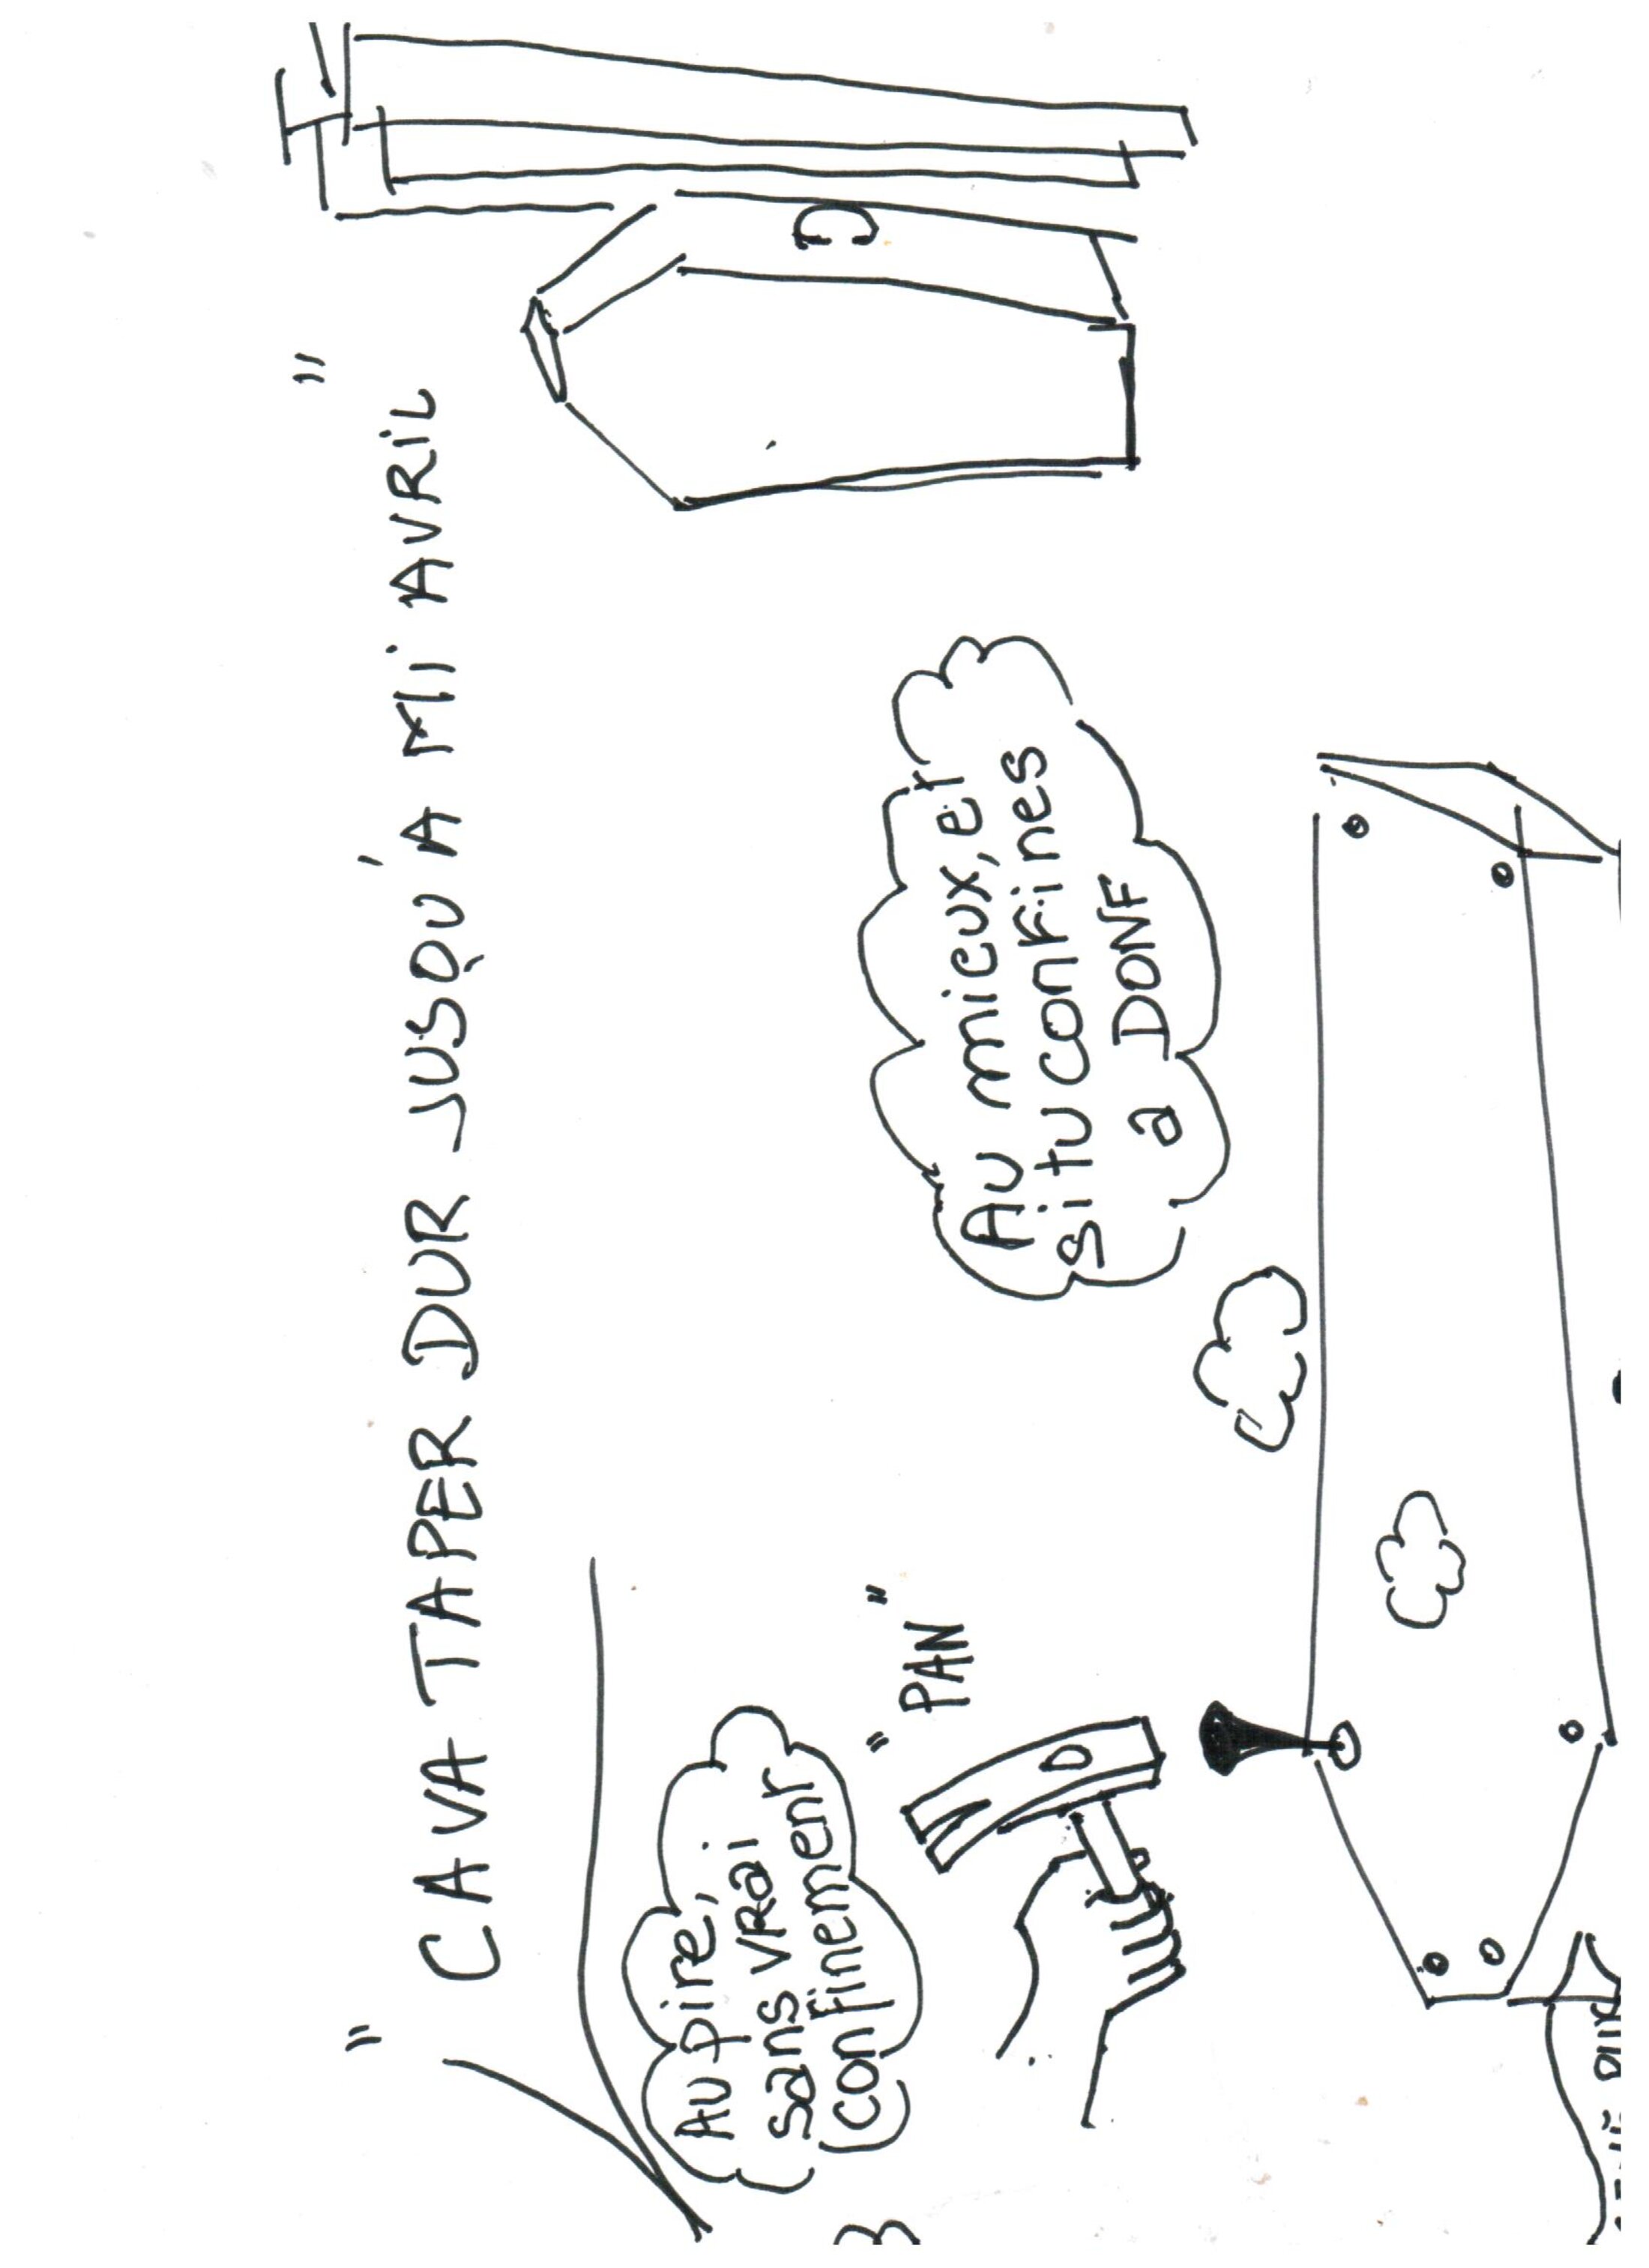 " CA VA TAPER DUR JUSQU'À MI AVRIL "
Au pire,
sans vrai
confinement
" PAN "
Au mieux, et
si tu confines
a DONF